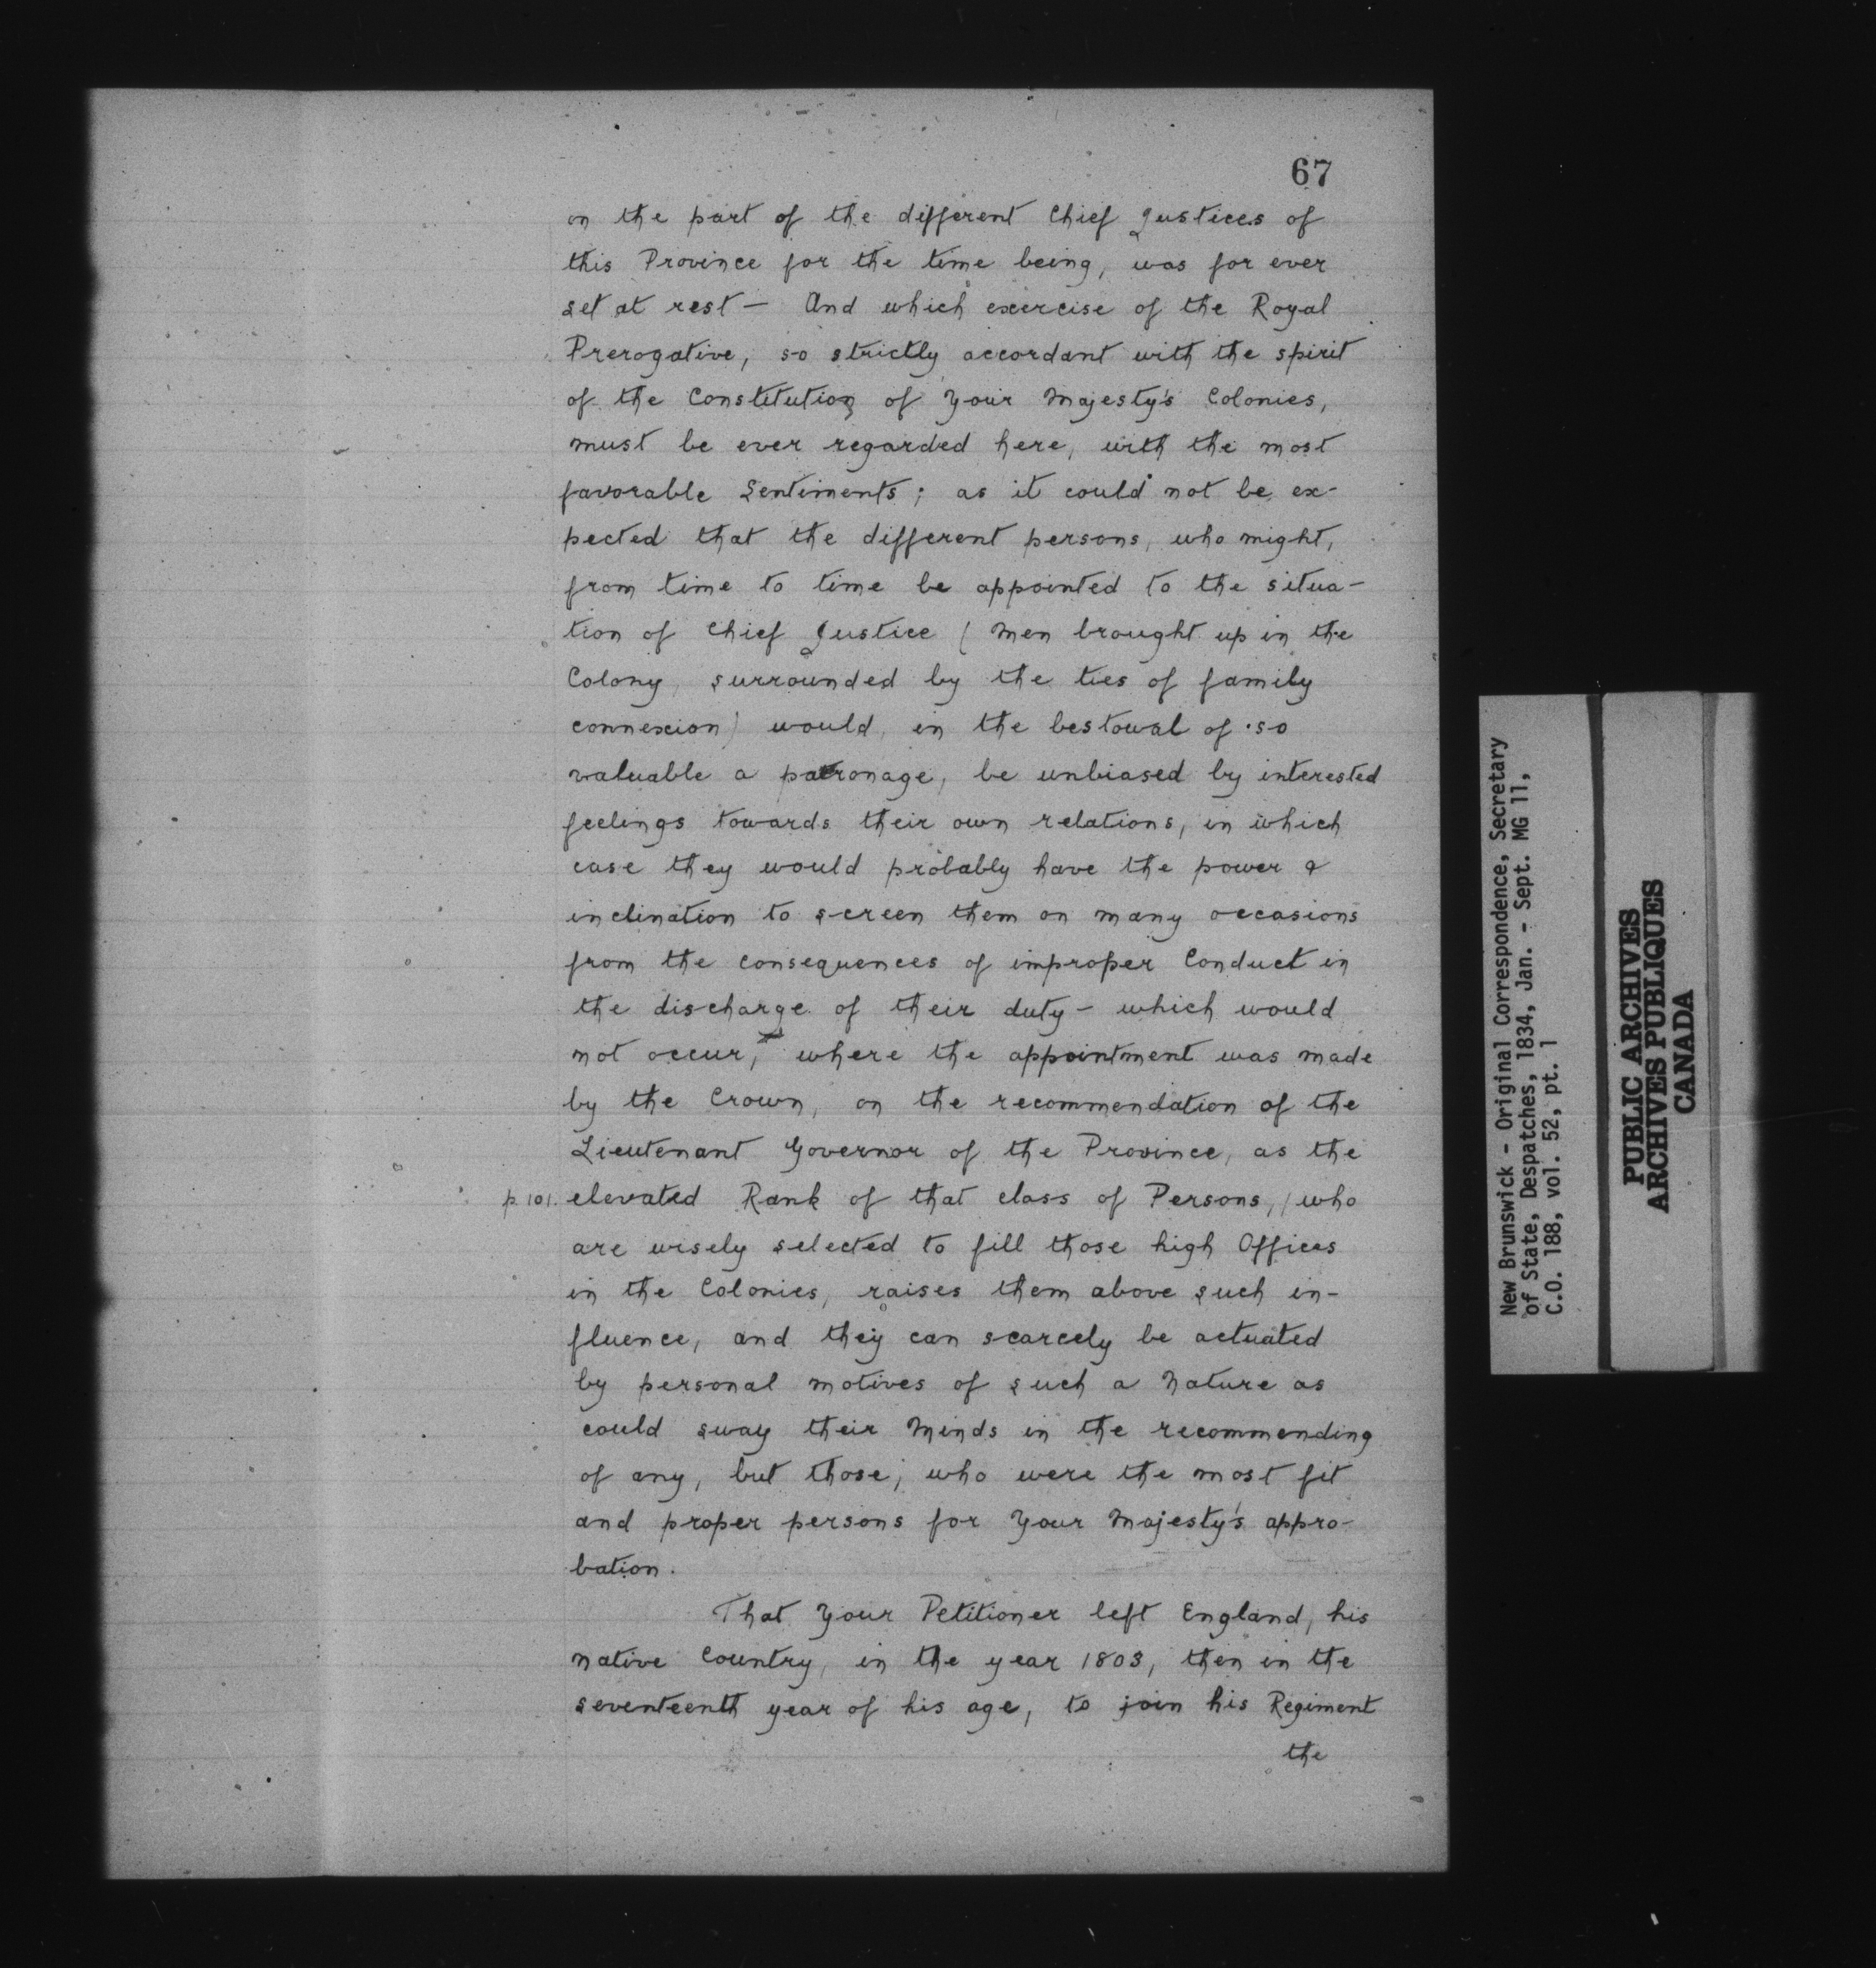 67
on the part of the different Chief Justices of
this Province for the time being, was for ever
set at rest — And which exercise of the Royal
Prerogative, so strictly accordant with the spirit
of the Constitution of Your Majesty's Colonies,
must be ever regarded here, with the most
favorable Sentiments; as it could not be ex-
pected that the different persons, who might,
from time to time be appointed to the situa-
tion of Chief Justice (Men brought up in the
Colony, surrounded by the ties of family
connexion) would, in the bestowal of so
valuable a patronage, be unbiased by interested
feelings towards their own relations, in which
case they would probably have the power &
inclination to screen them on many occasions
from the consequences of improper Conduct in
the discharge of their duty - which would
not occur, where the appointment was made
by the Crown, on the recommendation of the
Lieutenant Governor of the Province, as the
p. 101. elevated Rank of that class of Persons, / who
are wisely selected to fill those high Offices
in the Colonies, raises them above such in-
fluence, and they can scarcely be actuated
by personal motives of such a Nature as
could sway their Minds in the recommending
of any, but those, who were the most fit
and proper persons for Your Majesty's appro-
bation.
That Your Petitioner left England, his
native Country, in the year 1803, then in the
seventeenth year of his age, to join his Regiment
the
New Brunswick - Original Correspondence, Secretary
of State, Despatches, 1834, Jan. - Sept. MG 11,
C.O. 188, vol. 52, pt. 1
PUBLIC ARCHIVES
ARCHIVES PUBLIQUES
CANADA